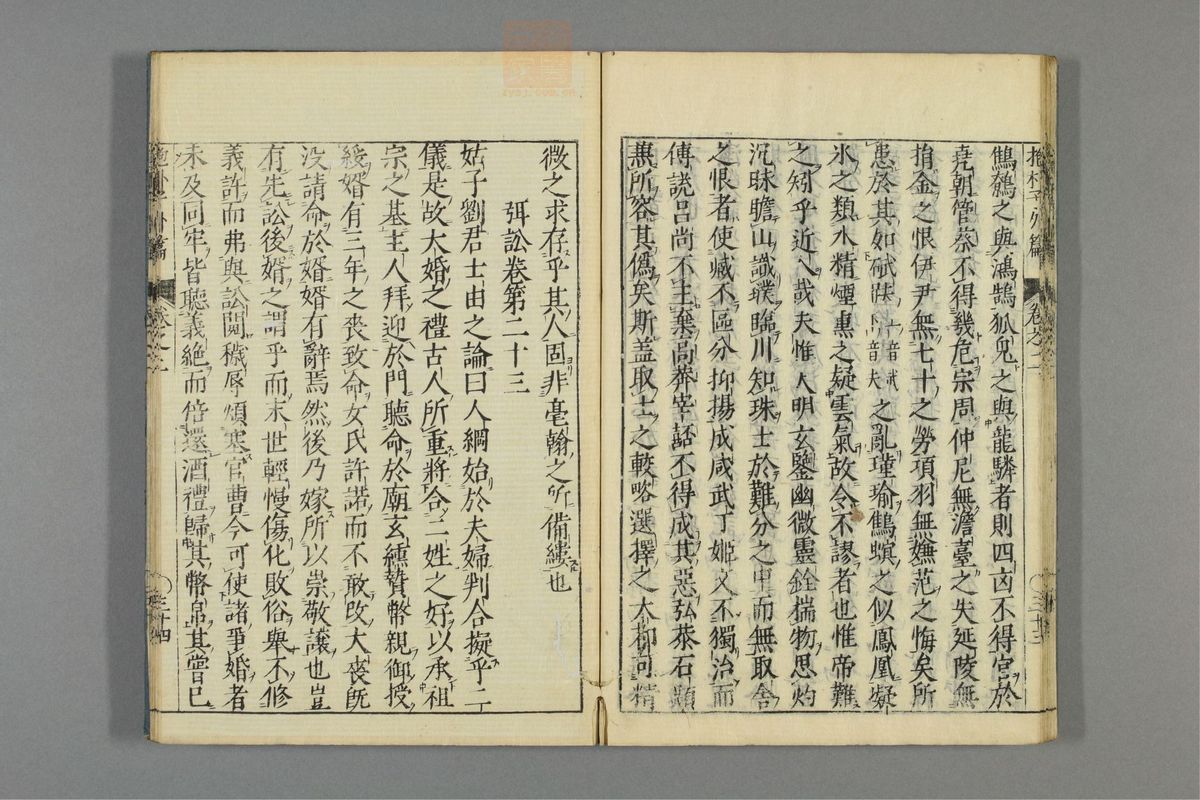 抱朴子外篇 卷之二 三十三
鷦鷯之與鴻鵠狐兔之與龍驎者則四凶不得官於
堯朝管蔡不得幾危宗周仲尼無澹臺之失延陵無
捐金之恨伊尹無七十之勞項羽無嫵范之悔矣所
患於其如碔砆之亂瑾瑜鷦螟之似鳳凰凝
氷之類水精煙熏之疑雲氣故令不謬者也惟帝難
之矧乎近人哉夫惟大明玄鑒幽微靈銓揣物思灼
沉昧瞻山識璞臨川知珠士於難分之中而無取舍
之恨者使臧不區分抑揚成咸武丁姬文不獨治而
傅說呂尚不主棄高莽宰嚭不得成其惡弘恭石顯
無所容其偽矣斯盖取士之較略選擇之大都可精
微之求存乎其人固非毫翰之所備縷也
弭訟卷第二十三
姑子劉君士由之論曰人綱始於夫婦判合擬乎二
儀是故大婚之禮古人所重將合二姓之好以承祖
宗之基主人拜迎於門聽命於廟玄纁贄幣親御授
綏婿有三年之喪致命女氏許諾而不敢改大喪既
没請命於婿婿有辭焉然後乃嫁所以崇敬讓也豈
有先訟後婿之謂乎而末世輕慢傷化敗俗舉不修
義許而弗與訟鬩穢辱煩塞官曹今可使諸爭婚者
未及同牢皆聽義絕而倍還酒禮歸其幣帛其嘗已
抱朴子外篇 卷之二 三十四